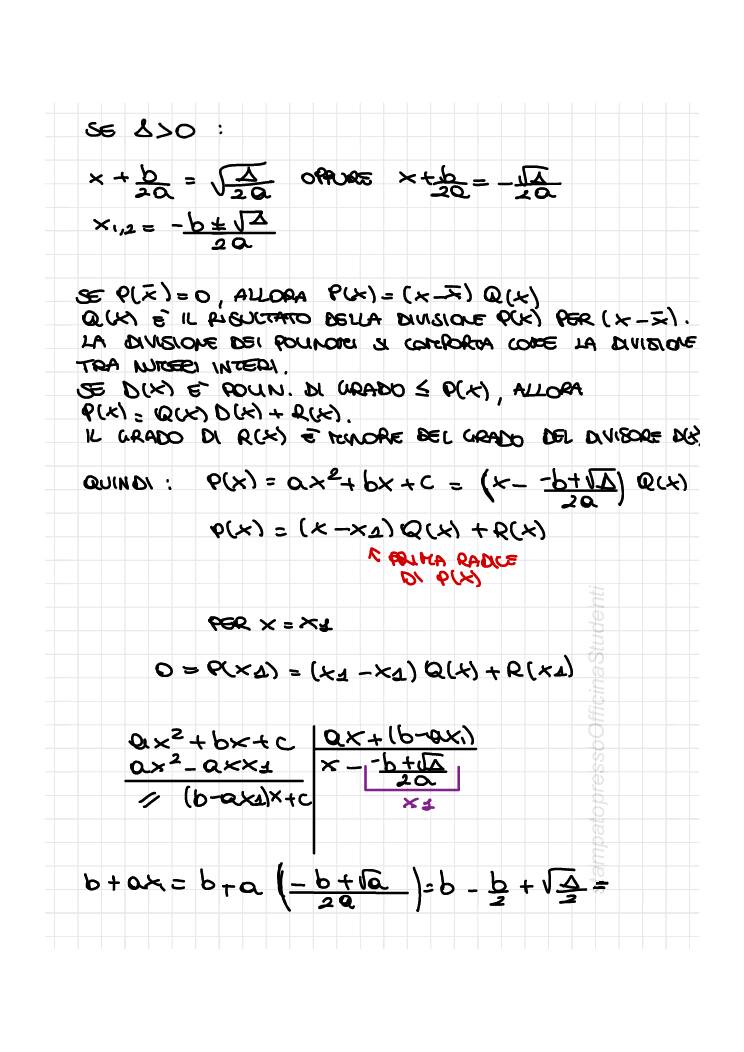 SE Δ>0 :
x + b/2a = √Δ/2a OPPURE x + b/2a = -√Δ/2a
x1,2 = -b ± √Δ/2a
SE P(x̄) = 0, ALLORA P(x) = (x-x̄) Q(x)
Q(x) È IL RISULTATO DELLA DIVISIONE P(x) PER (x-x̄).
LA DIVISIONE DEI POLINOMI SI COMPORTA COME LA DIVISIONE
TRA NUMERI INTERI.
SE D(x) È POLIN. DI GRADO ≤ P(x), ALLORA
P(x) = Q(x) D(x) + R(x).
IL GRADO DI R(x) È MINORE DEL GRADO DEL DIVISORE D(x)
QUINDI : P(x) = ax² + bx + c = (x - -b+√Δ/2a) Q(x)
P(x) = (x-x1) Q(x) + R(x)
↖ PRIMA RADICE
DI P(x)
PER x = x1
0 = P(x1) = (x1-x1) Q(x) + R(x1)
ax² + bx + c | ax + (b-ax1)
ax² - axx1 | x - -b+√Δ/2a
// (b-ax1)x + c
x1
b + ax1 = b + a (-b+√a/2a) = b - b/2 + √Δ/2 =
tampatopressoOfficinaStudenti